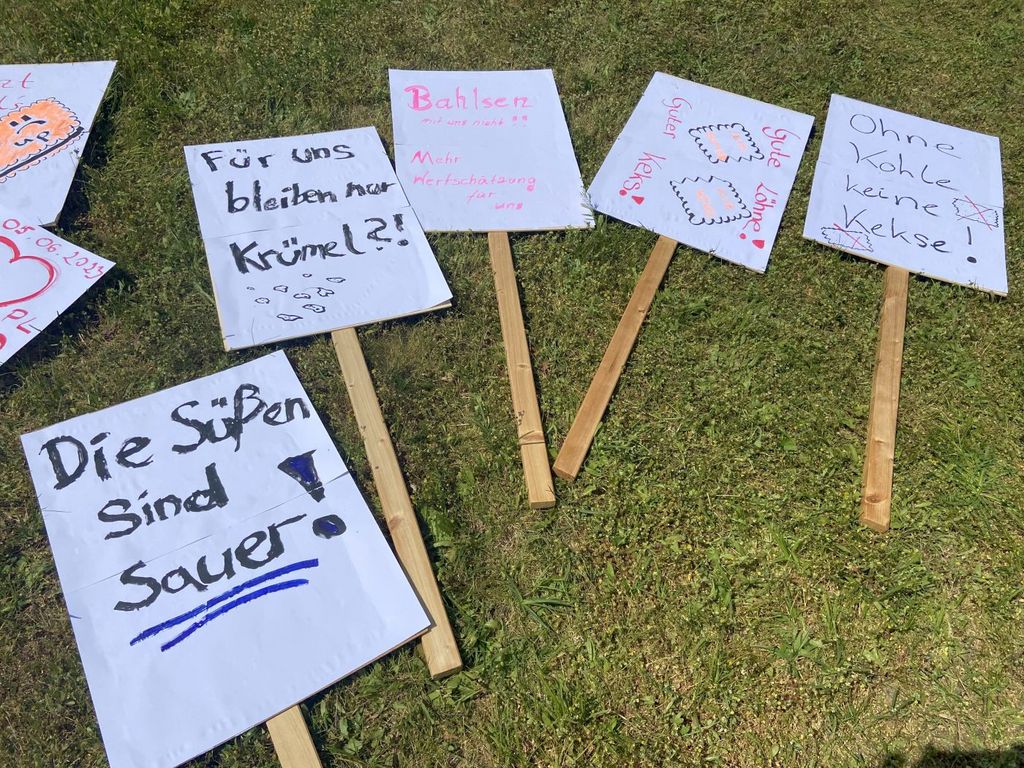 Für uns
bleiben nur
Krümel?!
Bahlsen
mit uns nicht!!
Mehr
Wertschätzung
für
uns
Gute Löhne!
Guter Keks!
Ohne
Kohle
keine
Kekse!
05.06.2023
Die Süßen
Sind
Sauer!